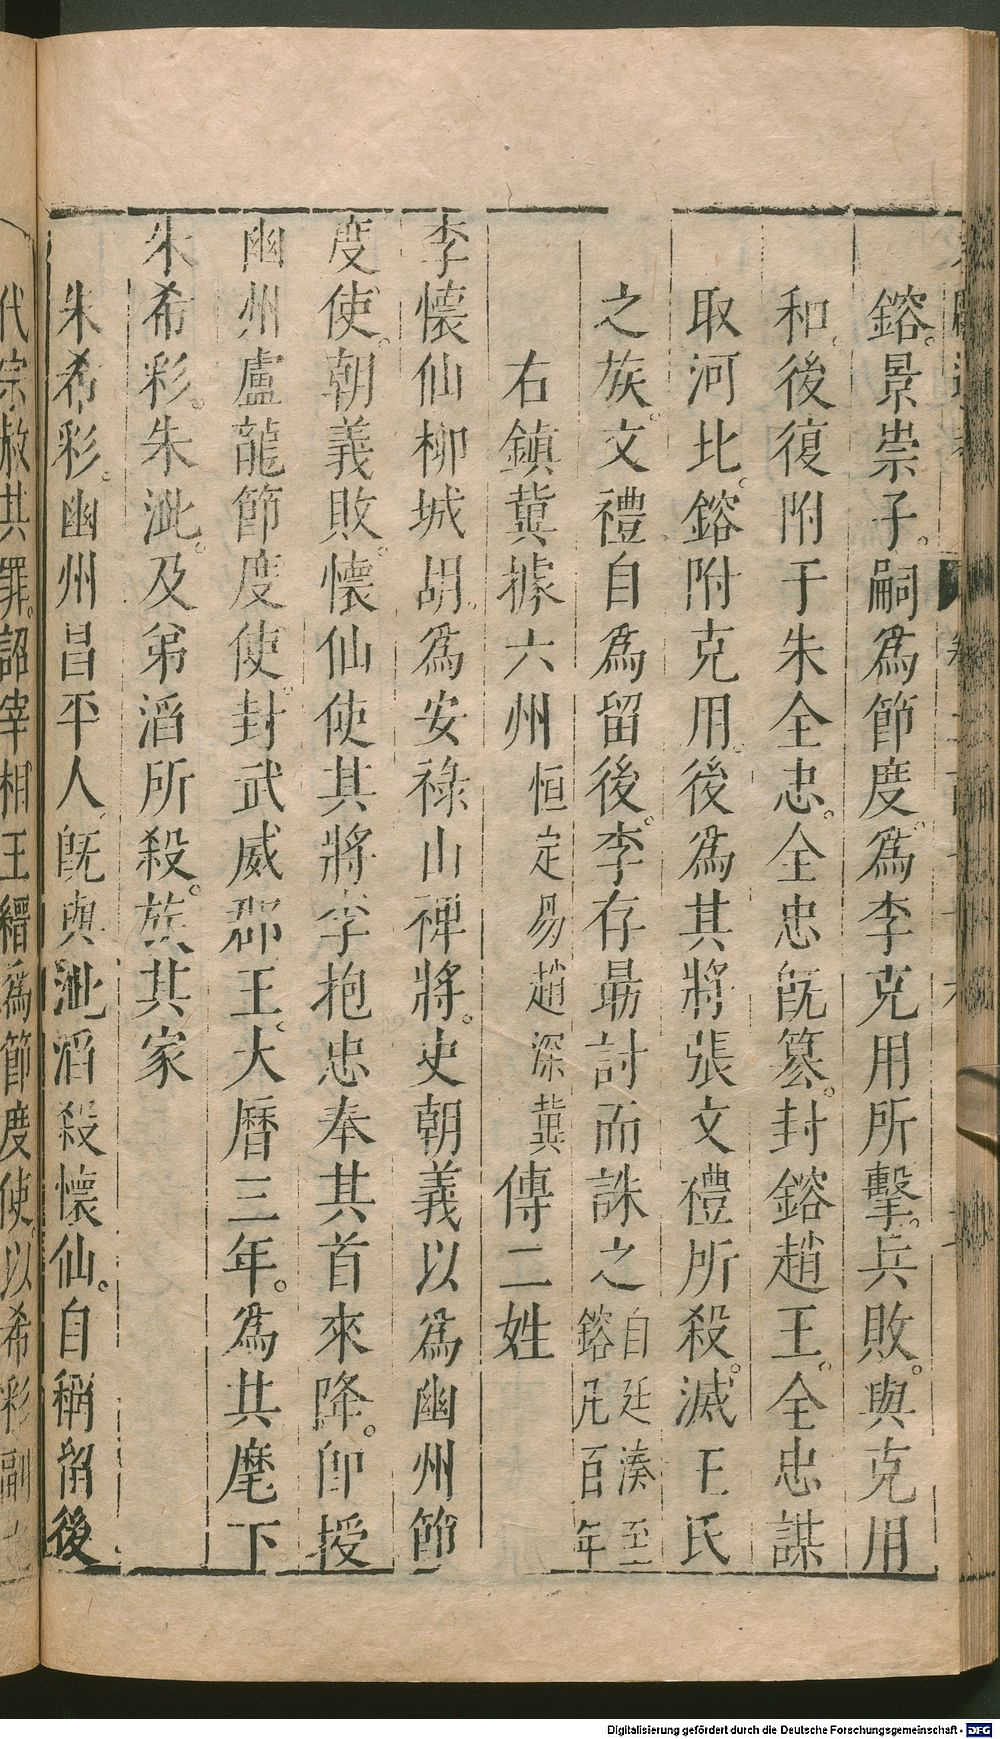 鎔。景崇子。嗣爲節度。爲李克用所擊。兵敗。與克用
和。後復附于朱全忠。全忠旣簒。封鎔趙王。全忠謀
取河北。鎔附克用。後爲其將張文禮所殺。滅王氏
之族。文禮自爲留後。李存朂討而誅之自廷湊至鎔凡百年
右鎮冀據六州恒定易趙深冀傳二姓
李懷仙柳城胡。爲安祿山裨將。史朝義以爲幽州節
度使。朝義敗。懷仙使其將李抱忠奉其首來降。卽授
幽州盧龍節度使。封武威郡王。大曆三年。爲其麾下
朱希彩。朱泚。及弟滔所殺。族其家
朱希彩。幽州昌平人。旣與泚滔殺懷仙。自稱留後
代宗赦其罪。詔宰相王縉爲節度使。以希彩副之
Digitalisierung gefördert durch die Deutsche Forschungsgemeinschaft - DFG